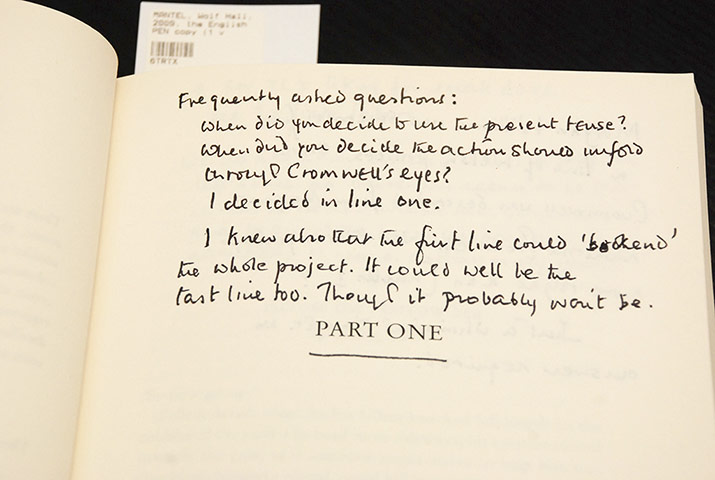 MANTEL, Wolf Hall,
2009, the English
PEN copy (1 v
6TRTX
Frequently asked questions:
When did you decide to use the present tense?
When did you decide the action should unfold
through Cromwell's eyes?
I decided in line one.
I knew also that the first line could 'bookend'
the whole project. It could well be the
last line too. Though it probably won't be.
PART ONE